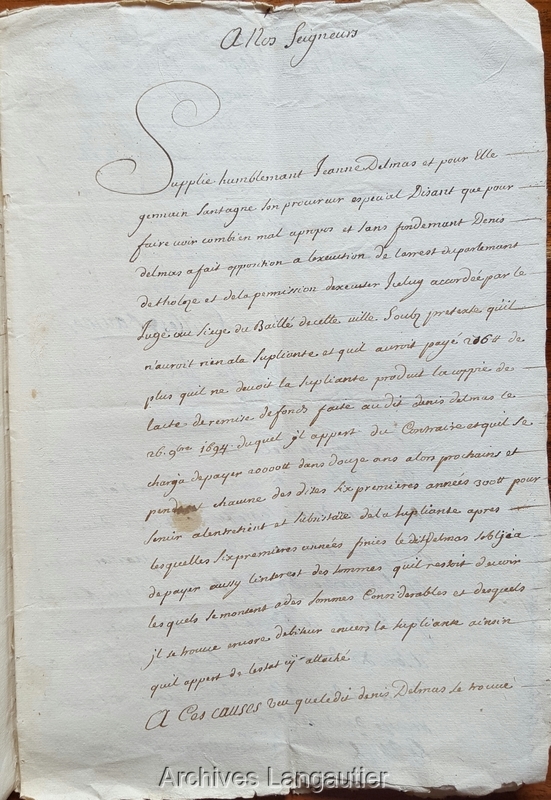 A Nos Seigneurs
Supplie humblemant Jeanne Delmas et pour Elle
germain Santagne son procureur especial Disant que pour
faire uoir combien mal apropos et sans fondemant Denis
delmas a fait opposition a lexecution de larrest du parlemant
de tholoze et de la permission dexecuter Iceluy accordée par le
Jugé au siege du Baillé decelle ville Soubz pretexte quil
n'auroit rien ala supliante et quil auroit payé de
plus quil ne deuoit la supliante produit la coppie de
lacte de remise de fonds faite audit denis delmas le
26. 9bre 1694 duquel jl appert du Contraire et quil se
chargea depayer dans douze ans alors prochains et
pendant chacune des dites six premieres années 300tt pour
seruir alentretient et subsistāce dela supliante apres
lesquelles six premieres années finies ledit Delmas sobligea
depayer aussy linterest des sommes quil restoit deuoir
lesquels se montent ades sommes Considerables et desquels
jl se trouue encore debiteur enuers la supliante ainsin
quil appert de lestat cy attaché
A Ces causes veu queledit denis Delmas se trouue
Archives Langautier